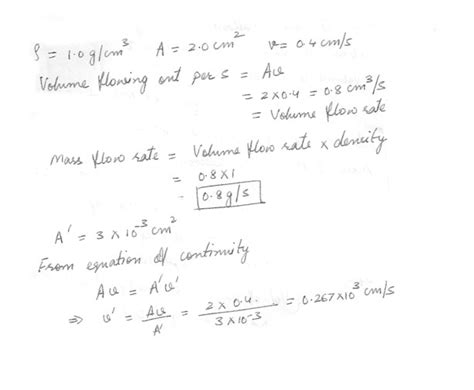 ρ = 1.0 g/cm³ A = 2.0 cm² v = 0.4 cm/s
Volume flowing out per s = Av
= 2×0.4 = 0.8 cm³/s
= Volume flow rate
Mass flow rate = Volume flow rate × density
= 0.8×1
= 0.8 g/s
A' = 3×10⁻³ cm²
From equation of continuity
Av = A'v'
⇒ v' = Av/A' = 2×0.4/3×10⁻³ = 0.267×10³ cm/s